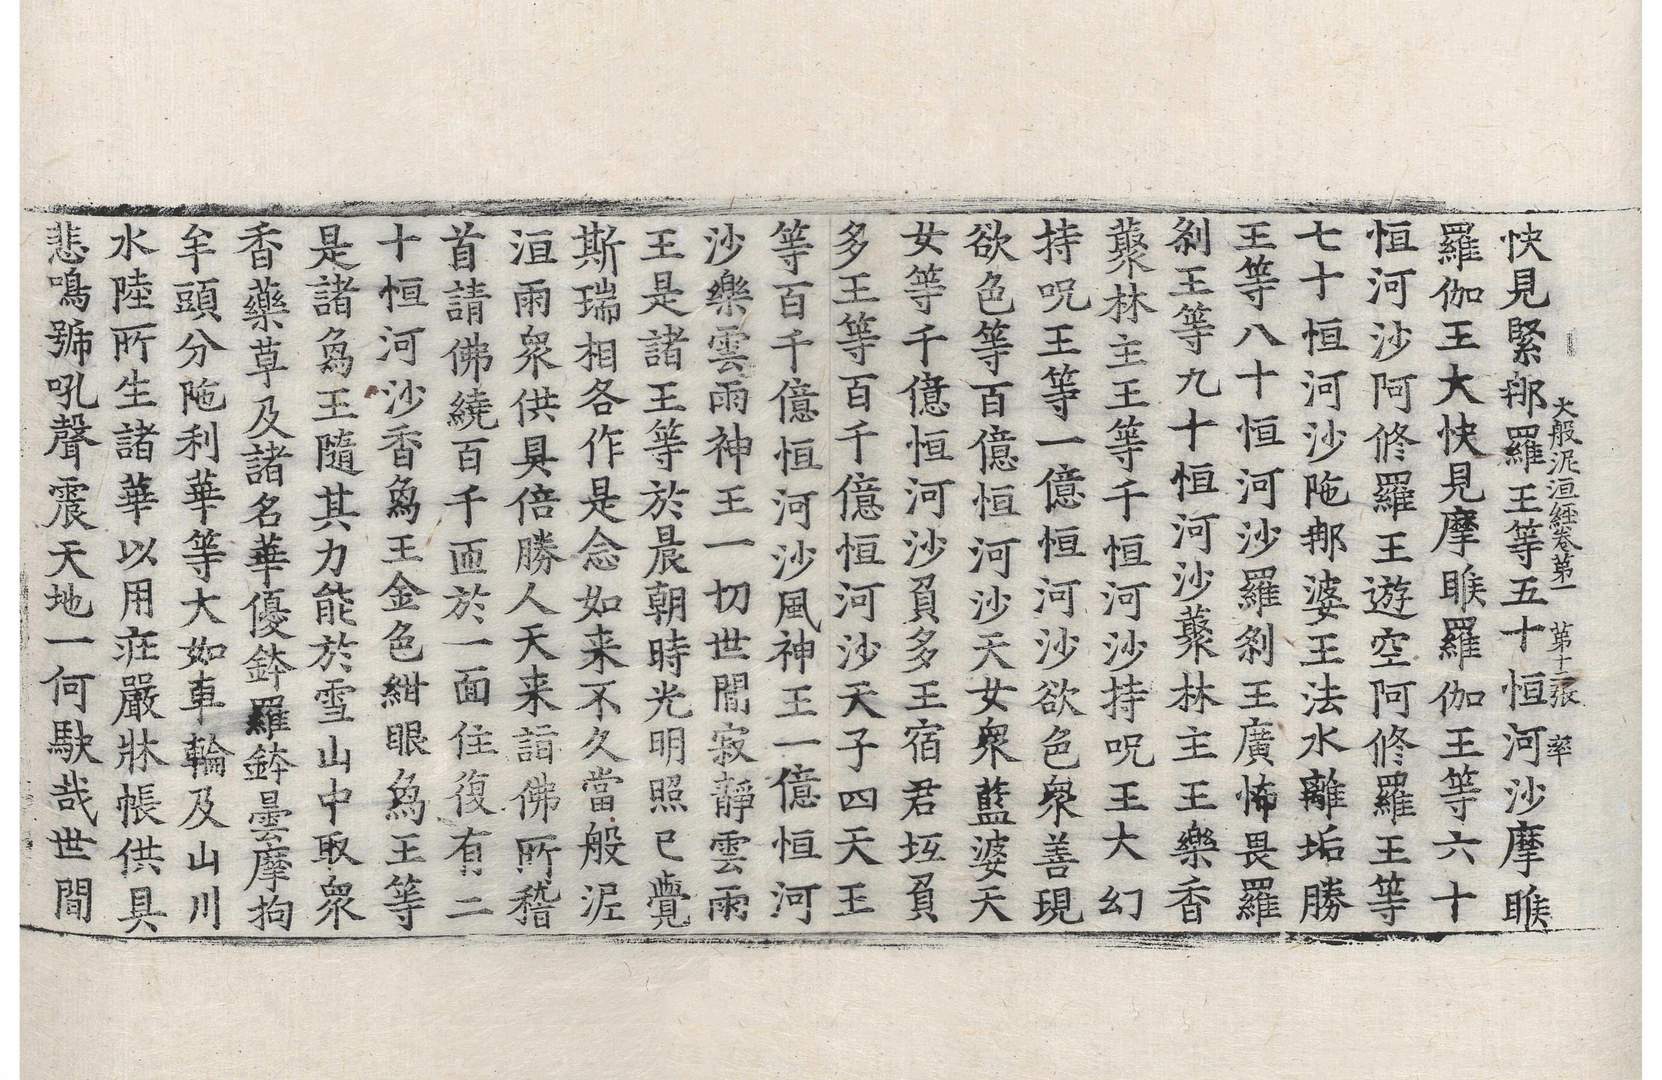 大般泥洹經卷第一　第十二張　率
快見緊那羅王等五十恒河沙摩睺
羅伽王大快見摩睺羅伽王等六十
恒河沙阿修羅王遊空阿修羅王等
七十恒河沙陁那婆王法水離垢勝
王等八十恒河沙羅剎王廣怖畏羅
剎王等九十恒河沙藂林主王樂香
藂林主王等千恒河沙持呪王大幻
持呪王等一億恒河沙欲色衆善現
欲色等百億恒河沙天女衆藍婆天
女等千億恒河沙負多王宿君坘負
多王等百千億恒河沙天子四天王
等百千億恒河沙風神王一億恒河
沙樂雲雨神王一切世閒寂靜雲雨
王是諸王等於晨朝時光明照已覺
斯瑞相各作是念如来不久當般泥
洹雨衆供具倍勝人天来詣佛所稽
首請佛繞百千匝於一面住復有二
十恒河沙香爲王金色紺眼爲王等
是諸爲王隨其力能於雪山中取衆
香藥草及諸名華優鉢羅鉢曇摩拘
牟頭分陁利華等大如車輪及山川
水陸所生諸華以用疘嚴牀帳供具
悲鳴號吼聲震天地一何駃哉世間